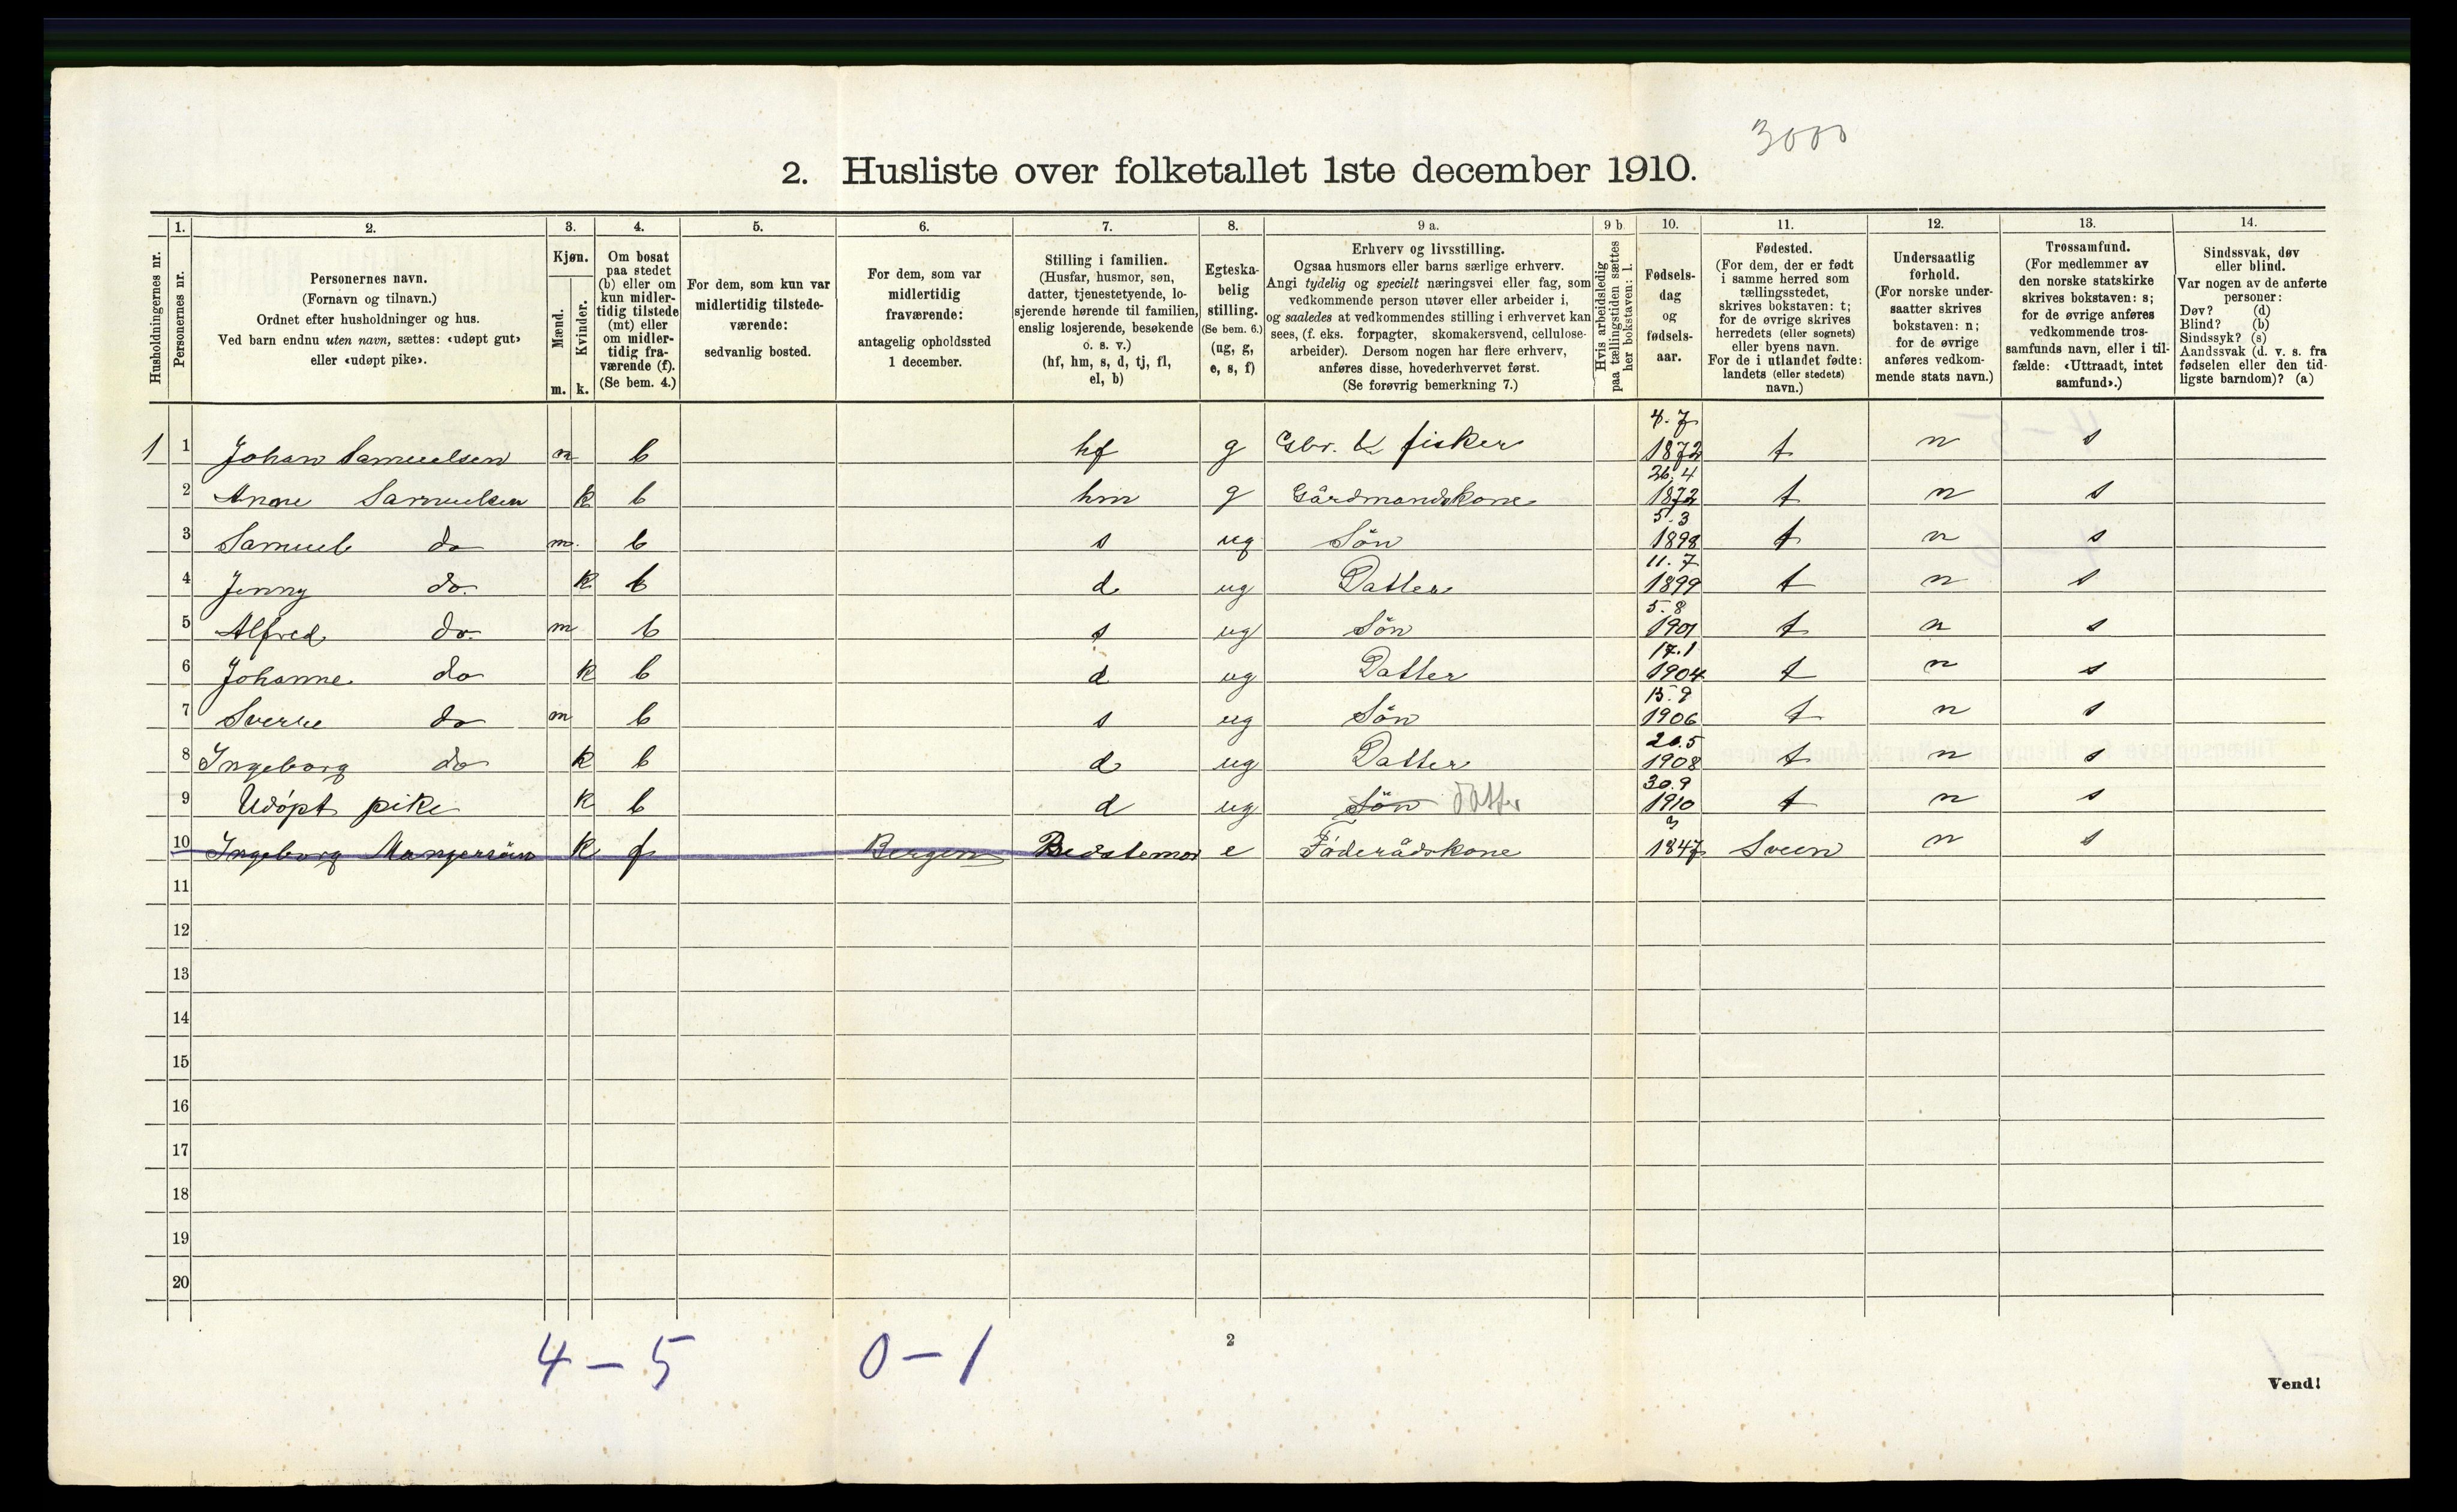 3000
2. Husliste over folketallet 1ste december 1910.
Husholdningernes nr.
1.
Personernes nr.
2.
Personernes navn.
(Fornavn og tilnavn.)
Ordnet efter husholdninger og hus.
Ved barn endnu uten navn, sættes: «udøpt gut»
eller «udøpt pike».
3.
Kjøn.
Mænd.
m.
Kvinder.
k.
4.
Om bosat
paa stedet
(b) eller om
kun midler-
tidig tilstede
(mt) eller
om midler-
tidig fra-
værende (f).
(Se bem. 4.)
5.
For dem, som kun var
midlertidig tilstede-
værende:
sedvanlig bosted.
6.
For dem, som var
midlertidig
fraværende:
antagelig opholdssted
1 december.
7.
Stilling i familien.
(Husfar, husmor, søn,
datter, tjenestetyende, lo-
sjerende hørende til familien,
enslig losjerende, besøkende
o. s. v.)
(hf, hm, s, d, tj, fl,
el, b)
8.
Egteska-
belig
stilling.
(Se bem. 6.)
(ug, g,
e, s, f)
9 a.
Erhverv og livsstilling.
Ogsaa husmors eller barns særlige erhverv.
Angi tydelig og specielt næringsvei eller fag, som
vedkommende person utøver eller arbeider i,
og saaledes at vedkommendes stilling i erhvervet kan
sees, (f. eks. forpagter, skomakersvend, cellulose-
arbeider). Dersom nogen har flere erhverv,
anføres disse, hovederhvervet først.
(Se forøvrig bemerkning 7.)
9 b
Hvis arbeidsledig
paa tællingstiden sættes
her bokstaven: l.
10.
Fødsels-
dag
og
fødsels-
aar.
11.
Fødested.
(For dem, der er født
i samme herred som
tællingsstedet,
skrives bokstaven: t;
for de øvrige skrives
herredets (eller sognets)
eller byens navn.
For de i utlandet fødte:
landets (eller stedets)
navn.)
12.
Undersaatlig
forhold.
(For norske under-
saatter skrives
bokstaven: n;
for de øvrige
anføres vedkom-
mende stats navn.)
13.
Trossamfund.
(For medlemmer av
den norske statskirke
skrives bokstaven: s;
for de øvrige anføres
vedkommende tros-
samfunds navn, eller i til-
fælde: «Uttraadt, intet
samfund».)
14.
Sindssvak, døv
eller blind.
Var nogen av de anførte
personer:
Døv? (d)
Blind? (b)
Sindssyk? (s)
Aandssvak (d. v. s. fra
fødselen eller den tid-
ligste barndom)? (a)
1 1 Johan Samuelsen m b hf g Gbr. & fisker 4.7 1872 t n s
2 Anne Samuelsen k b hm g Gårdmandskone 26.4 1872 t n s
3 Samuel do m b s ug Sön 5.3 1898 t n s
4 Jenny do. k b d ug Datter 11.7 1899 t n s
5 Alfred do. m b s ug Sön 5.8 1901 t n s
6 Johanne do k b d ug Datter 17.1 1904 t n s
7 Sverre do m b s ug Sön 15.9 1906 t n s
8 Ingeborg do k b d ug Datter 20.5 1908 t n s
9 Udöpt pike k b d ug Sön datter 30.9 1910 t n s
10 Ingeborg k f Bergen Bedstemor e Föderådskone 3 1847 Sveen n s
11
12
13
14
15
16
17
18
19
20
4 – 5 0 – 1
2
Vend!